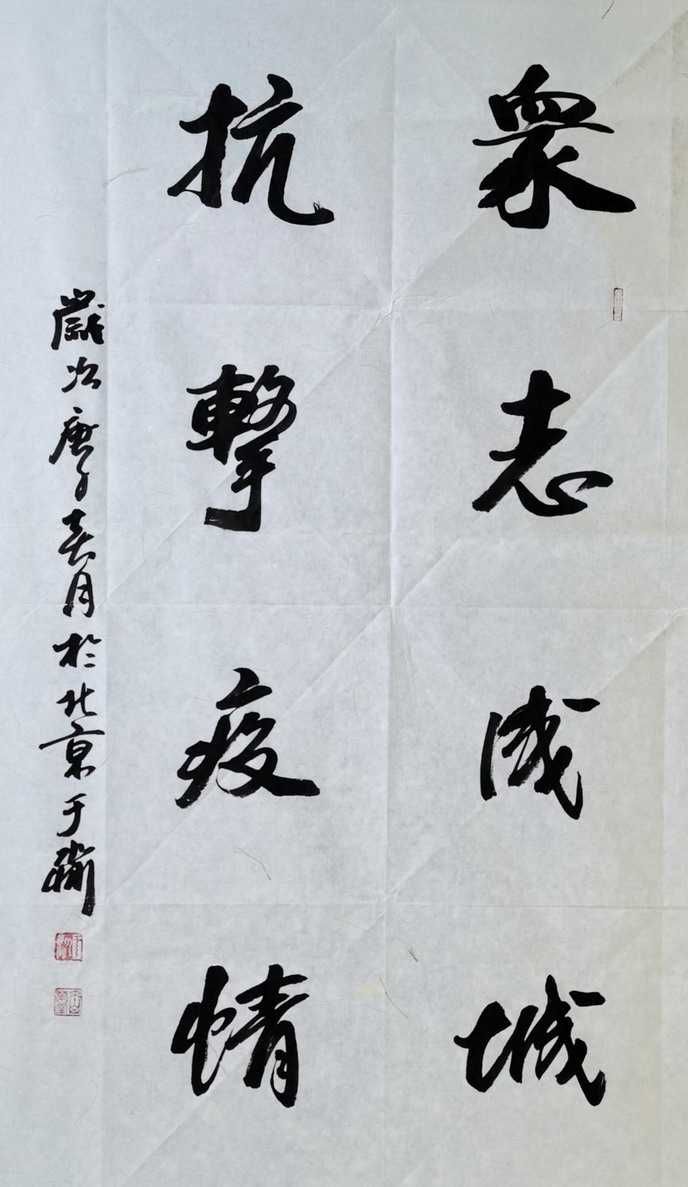 眾志成城
抗擊疫情
歲次庚子春月於北京于